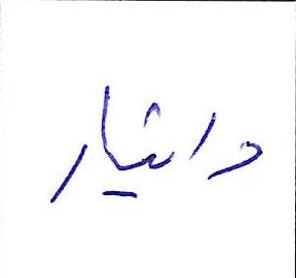 دانیار